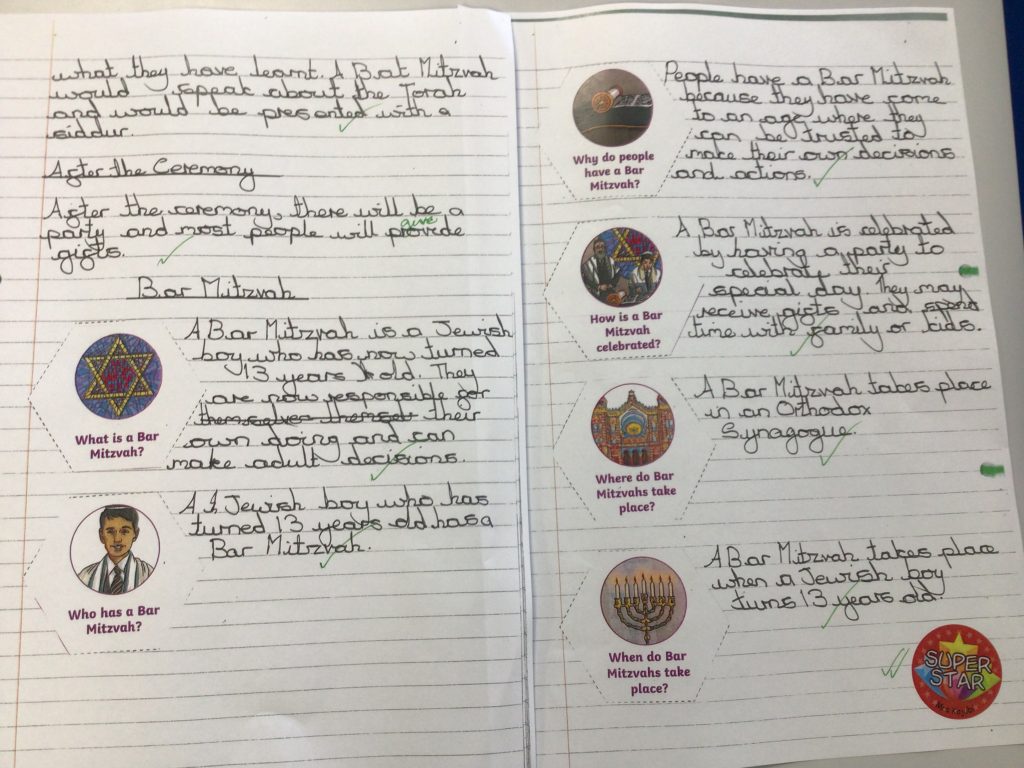 what they have learnt. A Bat Mitzvah
would speak about the Torah
and would be presented with a
siddur.
After the Ceremony
After the ceremony, there will be a
give
party and most people will provide
gifts.
Bar Mitzvah
What is a Bar
Mitzvah?
A Bar Mitzvah is a Jewish
boy who has now turned
13 years old. They
are now responsible for
themselves themself their
own doing and can
make adult decisions.
Who has a Bar
Mitzvah?
A Jewish boy who has
turned 13 years old has a
Bar Mitzvah.
Why do people
have a Bar
Mitzvah?
People have a Bar Mitzvah
because they have come
to an age where they
can be trusted to
make their own decisions
and actions.
How is a Bar
Mitzvah
celebrated?
A Bar Mitzvah is celebrated
by having a party to
celebrate their
special day. They may
receive gifts and spend
time with family or kids.
Where do Bar
Mitzvahs take
place?
A Bar Mitzvah takes place
in an Orthodox
Synagogue.
When do Bar
Mitzvahs take
place?
A Bar Mitzvah takes place
when a Jewish boy
turns 13 years old.
SUPER
STAR